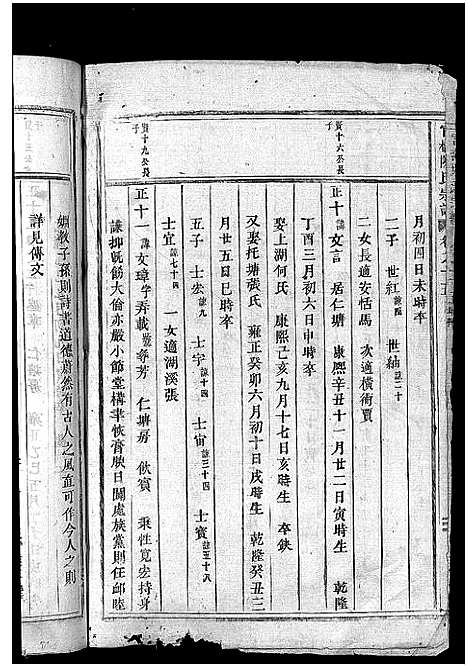 月初四日未時卒
二子 世紅 謙四 世紬 謙二十
二女長適安恬馬 次適橫衛賈
賢十六公長子
正十 諱文言 居仁塘 康熙辛丑十一月廿二日寅時生 乾隆
丁酉三月初六日申時卒
娶上湖何氏 康熙己亥九月十七日亥時生 卒缺
又娶托塘張氏 雍正癸卯六月初十日戌時生 乾隆癸丑三
月廿五日巳時卒
五子 士宏 謙九 士宇 謙十四 士宙 謙三十四 士寶 謙五十八
士宜 謙七十四 一女適湖溪張
賢十九公長子
正十一 諱文璋 字弄載 號芳 仁塘房 飲賓 秉性寬宏持身
謙抑飭大倫亦嚴小節堂構聿恢膏腴日闢處族黨則任卹睦
婣教子孫則詩書道德藹然有古人之風直可作今人之則
詳見傳文